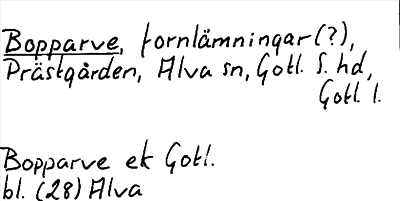 Bopparve, fornlämningar (?),
Prästgården, Alva sn, Gotl. S. hd,
Gotl. l.
Bopparve ek Gotl.
bl. (28) Alva